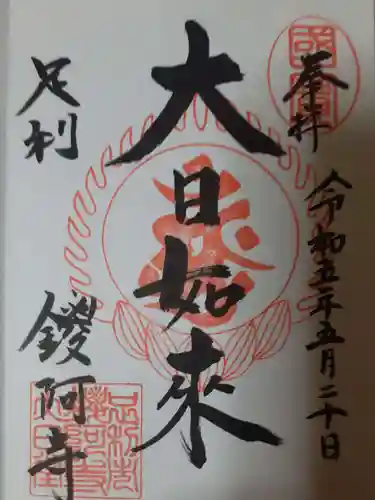 奉拝
令和五年五月二十日
大日如來
足利
鑁阿寺